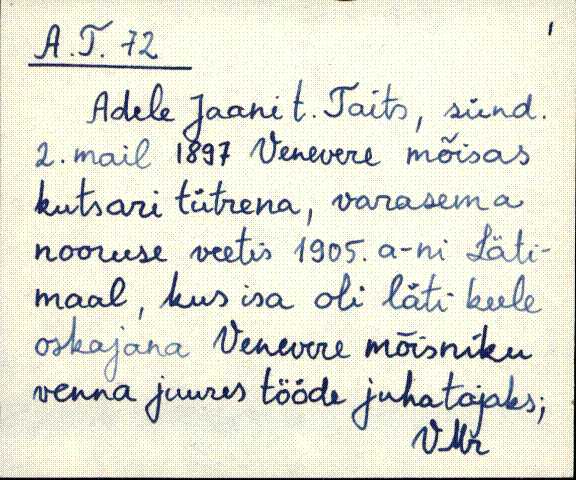 A.T. 72
Adele Jaani t. Taits, sünd.
2. mail 1897 Venevere mõisas
kutsari tütrena, varasema
nooruse veetis 1905. a-ni Läti-
maal, kus isa oli läti keele
oskajana Venevere mõisniku
venna juures tööde juhatajaks;
VMr